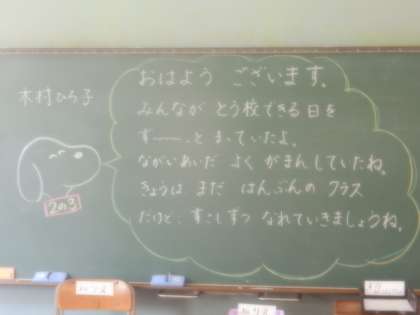 木村ひろ子
おはよう ございます。
みんなが とう校できる日を
すーーっと まっていたよ。
ながいあいだ よく がまんしていたね。
きょうは まだ はんぶんの クラス
だけど、すこしずつ なれていきましょうね。
2の3